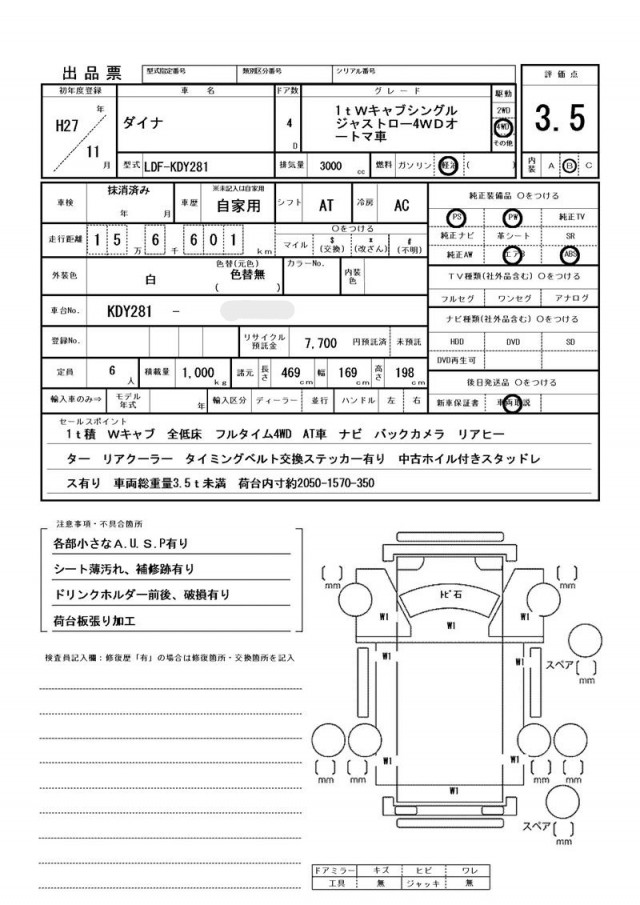 出品票 型式指定番号 類別区分番号 シリアル番号
初年度登録 車名 ドア数 グレード 駆動 評価点
H27 年 11 月
ダイナ
4 D
1tWキャブシングル
ジャストロー4WDオ
ートマ車
2WD
4WD
その他
3.5
型式 LDF-KDY281 排気量 3000 cc 燃料 ガソリン 軽油 ( ) 内装 A B C
車検 抹消済み 年 月 車歴 ※未記入は自家用 自家用 シフト AT 冷房 AC
純正装備品 〇をつける
PS PW 純正TV
走行距離 15万6千601km 〇をつける マイル $(交換) *(改ざん) #(不明)
純正ナビ 革シート SR
純正AW エアB ABS
外装色 白 色替(元色) 色替無 ( ) カラーNo. 内装色
TV種類(社外品含む) 〇をつける
フルセグ ワンセグ アナログ
車台No. KDY281 -
ナビ種類(社外品含む) 〇をつける
登録No. リサイクル預託金 7,700 円預託済 未預託
HDD DVD SD
DVD再生可
定員 6 人 積載量 1,000 kg 諸元 長さ 469 cm 幅 169 cm 高さ 198 cm
後日発送品 〇をつける
輸入車のみ⇒ モデル年式 年 輸入区分 ディーラー 並行 ハンドル 左 右
新車保証書 車両取説
セールスポイント
1t積 Wキャブ 全低床 フルタイム4WD AT車 ナビ バックカメラ リアヒー
ター リアクーラー タイミングベルト交換ステッカー有り 中古ホイル付きスタッドレ
ス有り 車両総重量3.5t未満 荷台内寸約2050-1570-350
注意事項・不具合箇所
各部小さなA.U.S.P有り
シート薄汚れ、補修跡有り
ドリンクホルダー前後、破損有り
荷台板張り加工
検査員記入欄:修復歴「有」の場合は修復箇所・交換箇所を記入
[ ] mm
[ ] mm
トビ石
W1 W1 W1
W1 W1
スペア [ ] mm
[ ] mm [ ] mm
[ ] mm [ ] mm
W1 W1
W1
スペア [ ] mm
ドアミラー キズ ヒビ ワレ
工具 無 ジャッキ 無